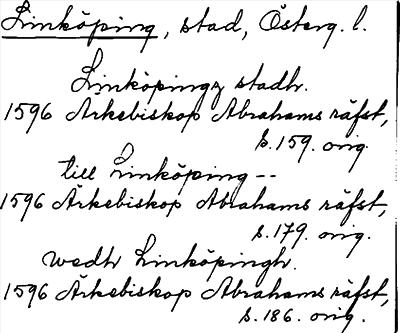 Linköping, stad, Österg. l.
Linköpingz stadh.
1596 Ärkebiskop Abrahams räfst,
s. 159. orig.
till Linköping --
1596 Ärkebiskop Abrahams räfst,
s. 179. orig.
wedh Linköpingh.
1596 Ärkebiskop Abrahams räfst,
s. 186. orig.